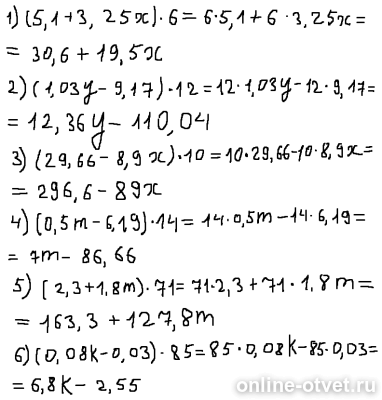 1) (5,1+3, 25x)·6=6·5,1+6·3,25x=
= 30,6+19,5x
2) (1,03y-9,17)·12=12·1,03y-12·9,17=
= 12,36y-110,04
3) (29,66-8,9x)·10=10·29,66-10·8,9x=
= 296,6-89x
4) (0,5m-6,19)·14=14·0,5m-14·6,19=
= 7m- 86,66
5) (2,3+1,8m)·71=71·2,3+71·1,8m=
= 163,3+127,8m
6) (0,08k-0,03)·85=85·0,08k-85·0,03=
= 6,8k- 2,55
online-otvet.ru